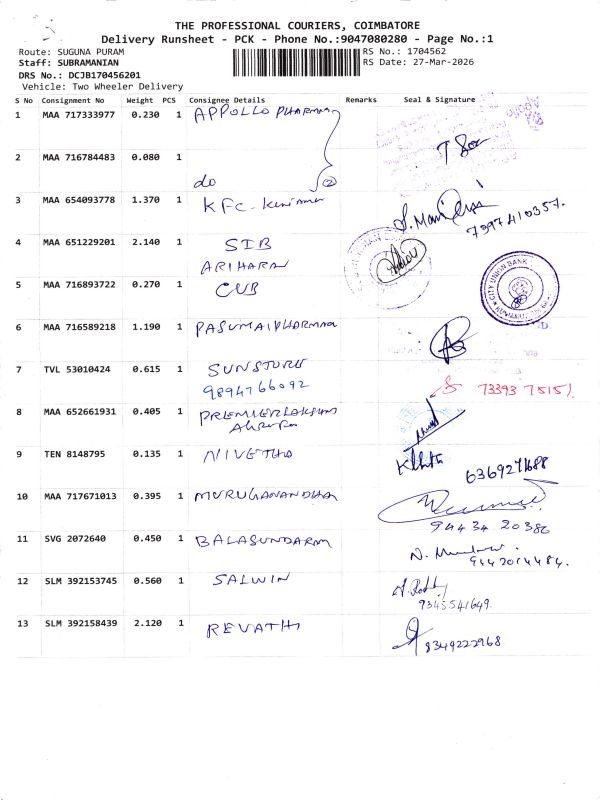 THE PROFESSIONAL COURIERS, COIMBATORE
Delivery Runsheet - PCK - Phone No.:9047080280 - Page No.:1
Route: SUGUNA PURAM
RS No.: 1704562
Staff: SUBRAMANIAN
RS Date: 27-Mar-2026
DRS No.: DCJB170456201
Vehicle: Two Wheeler Delivery
S No Consignment No Weight PCS Consignee Details Remarks Seal & Signature
1 MAA 717333977 0.230 1 APPOLLO PHARMAY
2 MAA 716784483 0.080 1 do ②
3 MAA 654093778 1.370 1 KFC - 7397410357.
4 MAA 651229201 2.140 1 SIB
ARIHARAN
5 MAA 716893722 0.270 1 CUB CITY UNION BANK
6 MAA 716589218 1.190 1 PASUMAI PHARMACY
7 TVL 53010424 0.615 1 SUNSTORE
9894766092 73393 75151
8 MAA 652661931 0.405 1 PREMIER LAKSHMI
9 TEN 8148795 0.135 1 NIVETHA 6369271688
10 MAA 717671013 0.395 1 MURUGANANDHAM
94434 20386
11 SVG 2072640 0.450 1 BALASUNDARM
12 SLM 392153745 0.560 1 SALWIN
9345541649
13 SLM 392158439 2.120 1 REVATHI 8349222968